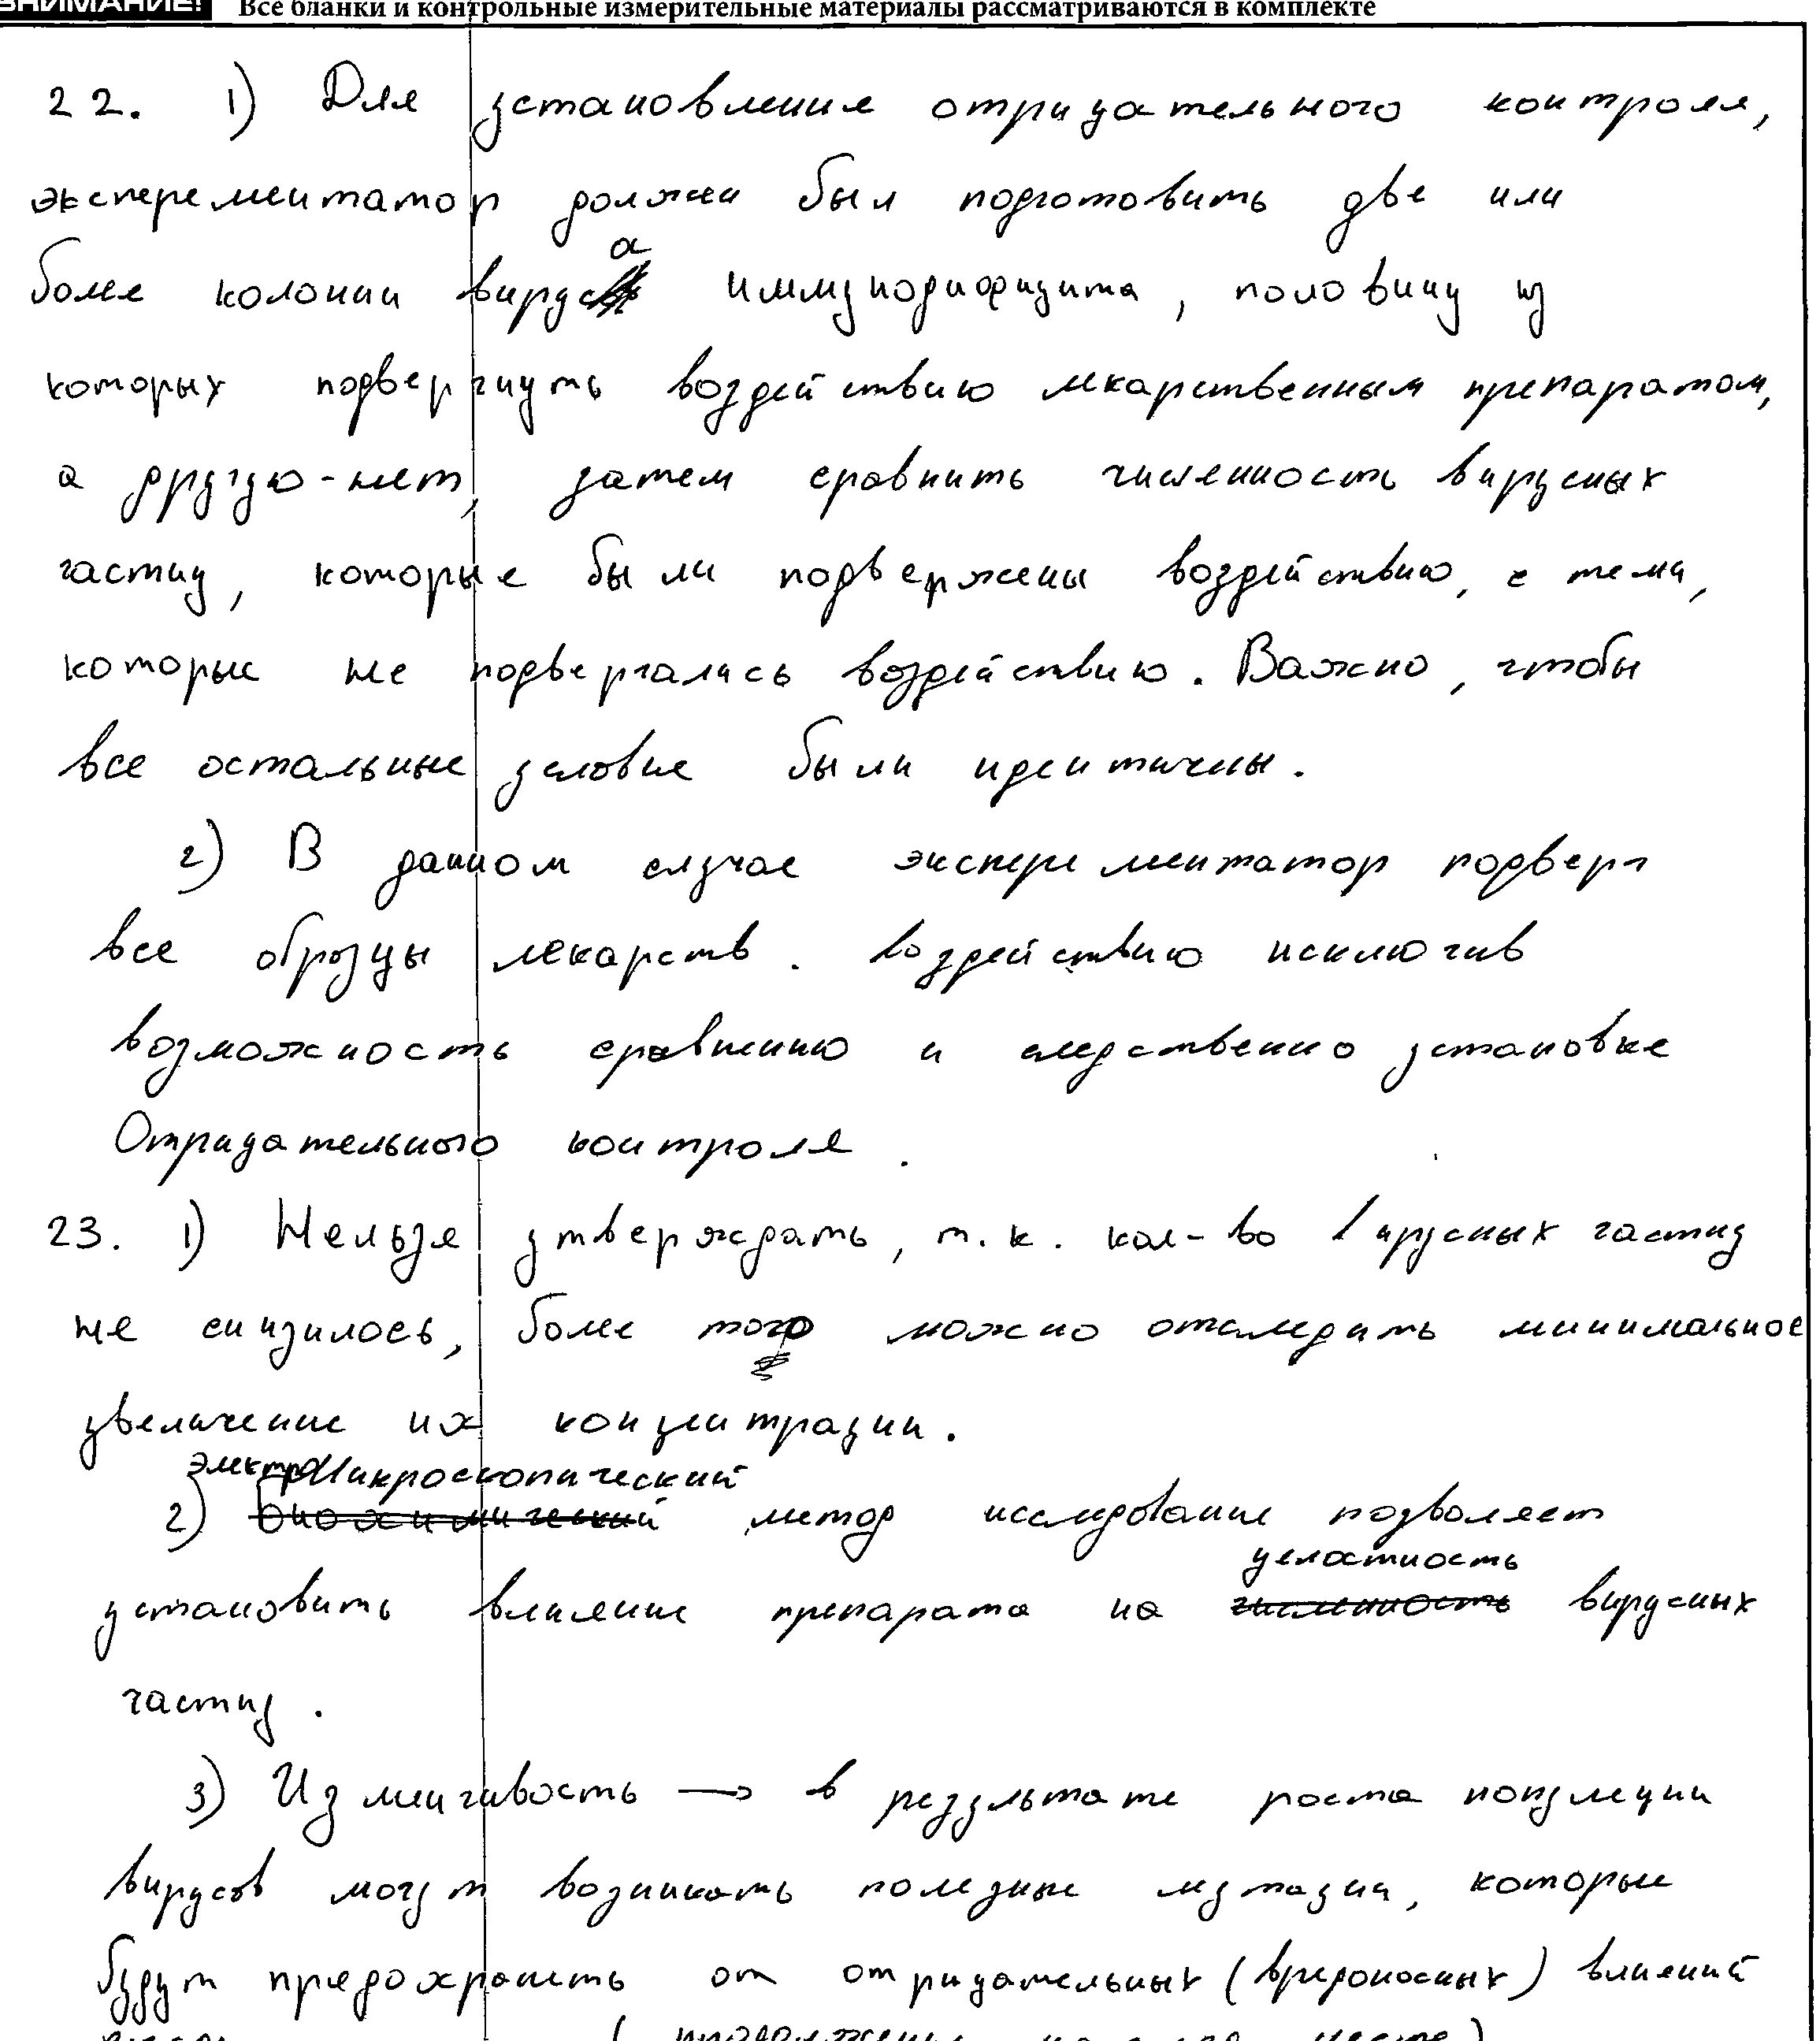 ВНИМАНИЕ! Все бланки и контрольные измерительные материалы рассматриваются в комплекте
22. 1) Для установления отрицательного контроля,
эксперементатор должен был подготовить две или
более колонии вируса иммунодифицита, половину из
которых подвергнуть воздействию лекарственным препаратом,
а другую - нет, затем сравнить численность вирусных
частиц, которые были подвержены воздействию, с теми,
которые не подвергались воздействию. Важно, чтобы
все остальные условие были идентичны.
2) В данном случае эксперементатор подверг
все образцы лекарств. воздействию исключив
возможность сравнению и следственно установке
Отрицательного контроля.
23. 1) Нельзя утверждать, т.к. кол-во вирусных частиц
не снизилось, более того можно отследить минимальное
увеличение их концентрации.
электромикроскопический
2) биохимический метод исследование позволяет
целостность
установить влияние препарата на численность вирусных
частиц.
3) Изменчивость → в результате роста популяции
вирусов могут возникать полезные мутации, которые
будут предохранять от отрицательных (вредоносных) влияний
( продолжение на